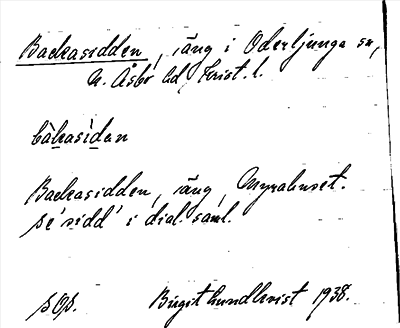 Backasidden, äng i Oderljunga sn,
N. Åsbo hd, Krist. l.
bàkasìdan
Backasidden, äng, Myrahuset.
se 'sidd' i dial. saml.
sOp. Birgit Lundkvist 1938.